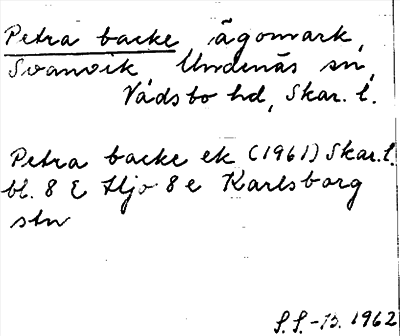 Petra backe ägomark,
Svanvik Undenäs sn,
Vadsbo hd, Skar. l.
Petra backe ek (1961) Skar. l.
bl. 8 E Hjo 8 e Karlsborg
stn
S.S.-B. 1962